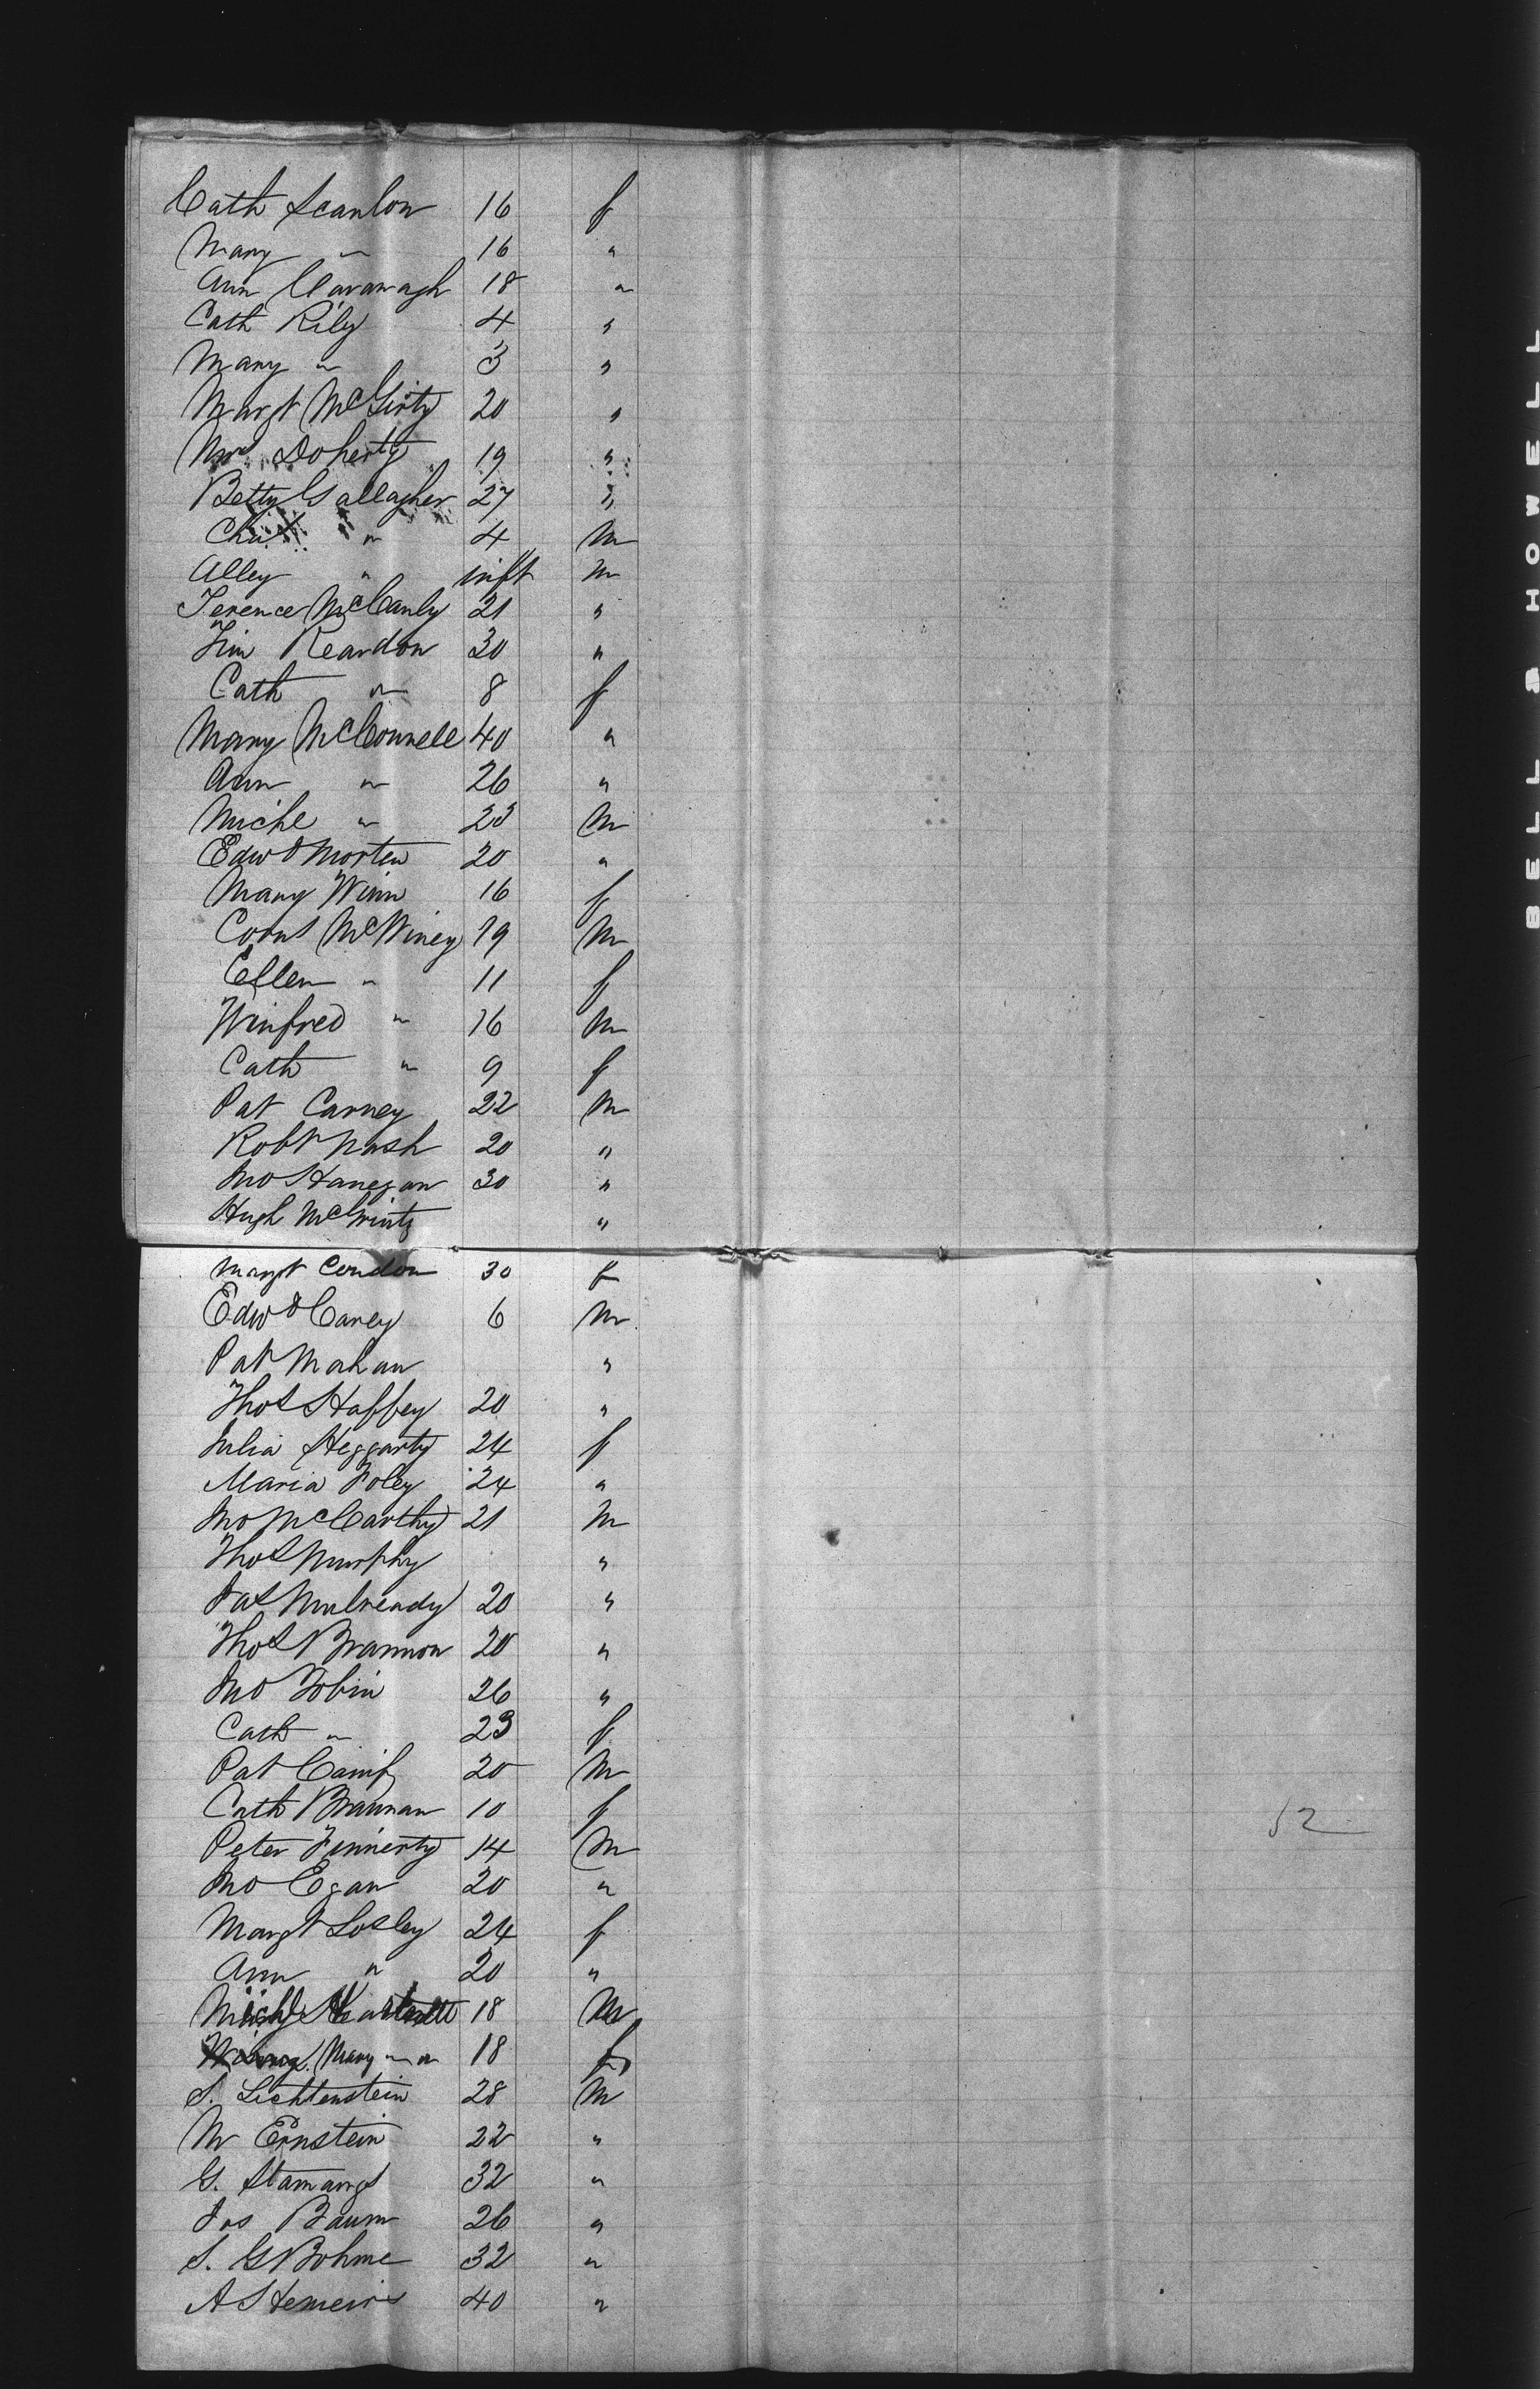 Cath Scanlon 16 f
Mary " 16 "
Ann Cavanagh 18 "
Cath Rily 4 "
Mary " 3 "
Margt McGirty 20 "
Doherty 19 "
Betty Gallagher 27 "
Chas " 4 m
Alley " inft m
Terence McCanly 21 "
Tim Reardon 30 "
Cath " 8 f
Mary McConnell 40 "
Ann " 26 "
Michl " 23 m
Edwd Morten 20 "
Mary Winn 16 f
Corns McWiney 19 m
Ellen " 11 f
Winfred " 16 m
Cath " 9 f
Pat Carney 22 m
Robt Nash 20 "
Jno Hanegan 30 "
Hugh "
Margt Condon 30 f
Edwd Carey 6 m
Pat Mahan "
Thos Haffey 20 "
Julia Heggarty 24 f
Maria Foley 24 "
Jno McCarthy 21 m
Thos Murphy "
Jas Mulready 20 "
Thos Brannon 20 "
Jno Tobin 26 "
Cath " 23 f
Pat 20 m
Cath Brannan 10 f
Peter Finnerty 14 m
Jno Egan 20 "
Margt Losley 24 f
Ann " 20 "
Michl 18 m
Mary " " 18 f
S. Lichtenstein 28 m
M Ernstein 22 "
G. 32 "
Jos Baum 26 "
S. G Bohme 32 "
A 40 "
52
BELL & HOWELL